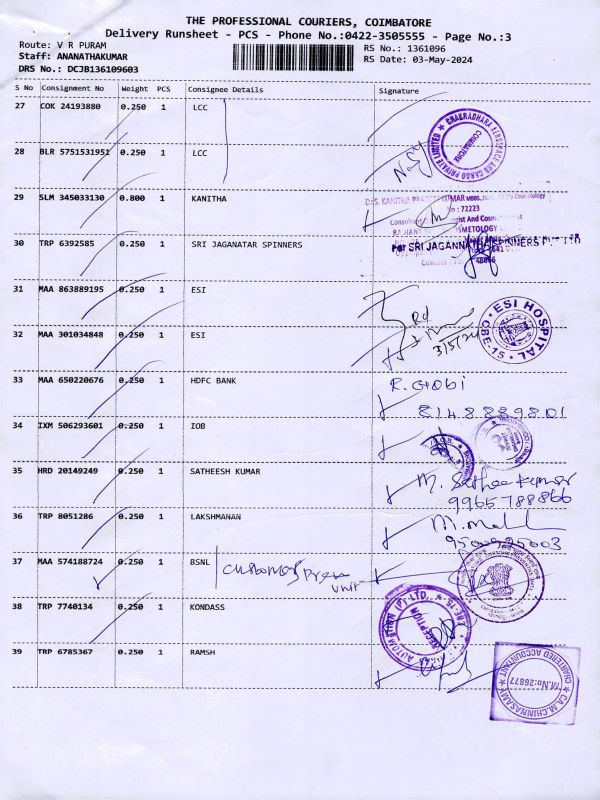 THE PROFESSIONAL COURIERS, COIMBATORE
Delivery Runsheet - PCS - Phone No.:0422-3505555 - Page No.:3
Route: V R PURAM
RS No.: 1361096
Staff: ANANATHAKUMAR
RS Date: 03-May-2024
DRS No.: DCJB136109603
S No Consignment No Weight PCS Consignee Details Signature
27 COK 24193880 0.250 1 LCC
CHAKRADHARA AEROSPACE AND CARGO PRIVATE LIMITED
COIMBATORE
28 BLR 5751531951 0.250 1 LCC
29 SLM 345033130 0.800 1 KANITHA
72223
30 TRP 6392585 0.250 1 SRI JAGANATAR SPINNERS
For SRI JAGANNATHA SPINNERS PVT LTD
31 MAA 863889195 0.250 1 ESI
ESI HOSPITAL
CBE-15
32 MAA 301034848 0.250 1 ESI
3/5/24
33 MAA 650220676 0.250 1 HDFC BANK
R. Gobi
8148889801
34 IXM 506293601 0.250 1 IOB
35 HRD 20149249 0.250 1 SATHEESH KUMAR
M. Satheeskumar
9965788866
36 TRP 8051286 0.250 1 LAKSHMANAN
37 MAA 574188724 0.250 1 BSNL
Customer
unit
38 TRP 7740134 0.250 1 KONDASS
RECEPTION
39 TRP 6785367 0.250 1 RAMSH
CA.M.CHINNASAMY
M.No:26877
CHARTERED ACCOUNTANT